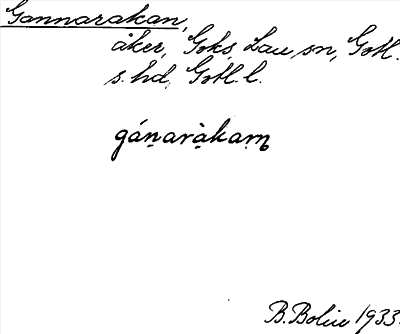 Gannarakan,
åker, Goks, Lau sn, Gotl.
s. hd, Gotl. l.
gánaràkam
B. Bolin 1933.